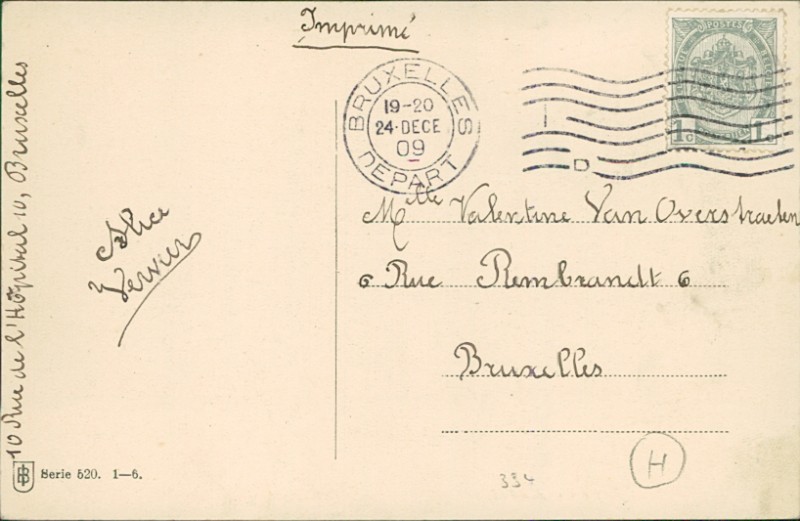 Imprimé
BRUXELLES
19-20
24·DECE
09
DEPART
POSTES
1c 1c
Mlle Valentine Van Overstraeten
6 Rue Rembrandt 6
Bruxelles
Alice
Vervier
10 Rue de l'Hôpital 10, Bruxelles
Serie 520. 1—6.
334
H